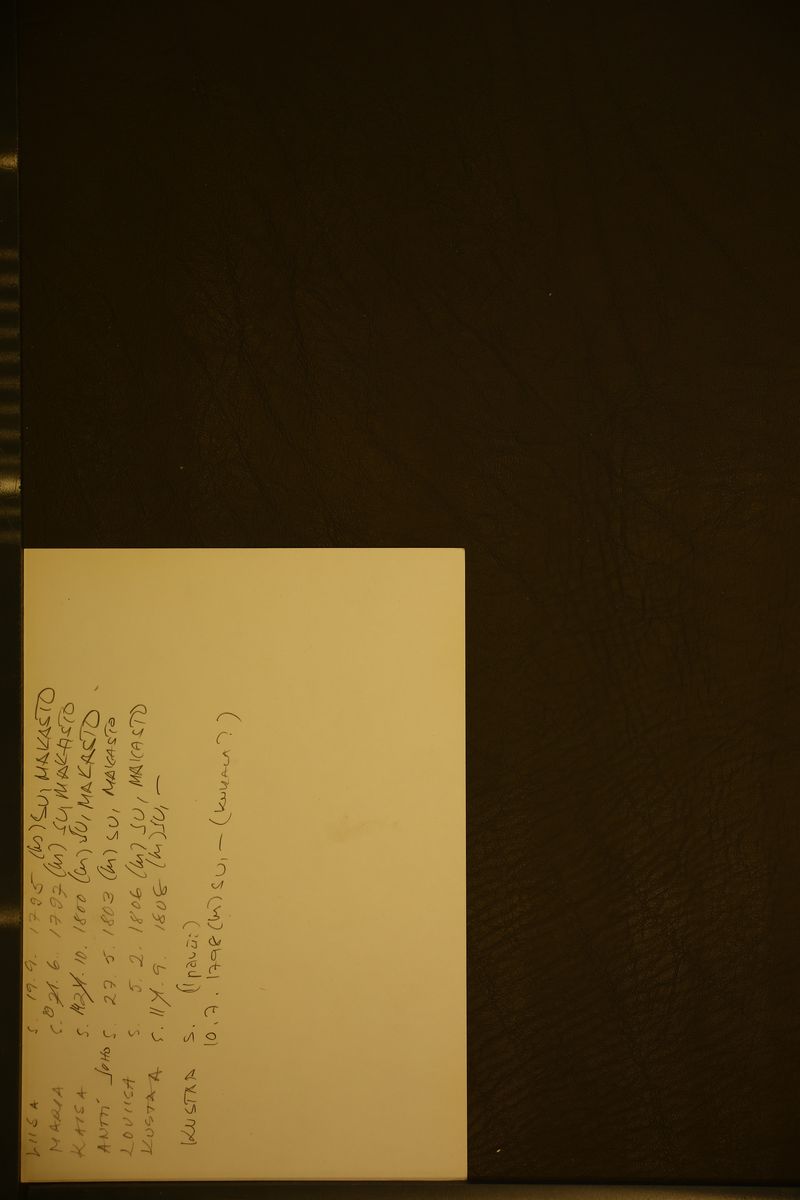 LIISA S. 19.9. 1795 (hs) SU, MAKASTO
MARIA S. 6. 1797 (hs) SU, MAKASTO
KAISA S. 10. 1800 (hs) SU, MAKASTO
ANTTI JUHO S. 27.5. 1803 (hs) SU, MAKASTO
LOVIISA S. 5.2. 1806 (hs) SU, MAKASTO
KUSTAA S. 11. 9. 1808 (hs) SU, —
KUSTAA S. (1 päivä)
10.7. 1798 (hs) SU, —